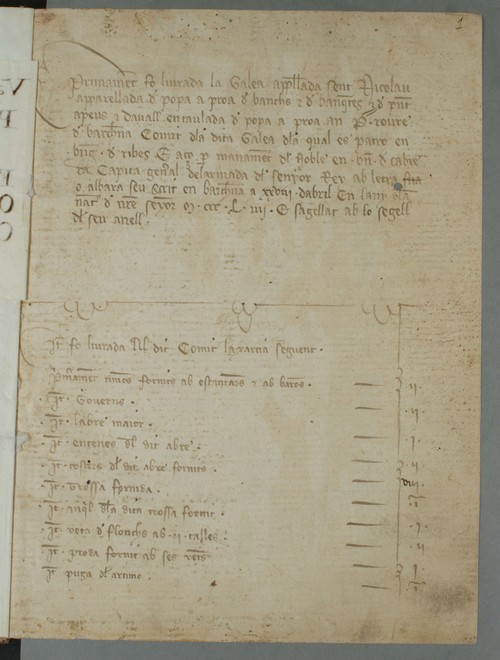 1
Primament fo liurada la Galea apellada sent Nicolau
apparellada d popa a proa d banchs & d bangres & d punt
apeus & dauall encaulada d popa a proa an P. roure
d barchna Comit dla dita Galea dla qual es patro en
bng. d ribes E aço p manament dl noble en. bn. d cabre
ra Capita genal delarmada dl senyor Rey ab letra sua
o albara seu scrit en barchna a xxvii dabril En lany dla
nat d nre senyor M. ccc. L. iii. E sagellat ab lo segell
dl seu anell.
It fo liurada All dit Comit la xarcia seguent.
Primament timons fornits ab & ab barons. ii
It. Gouerns. ii
It. labre maior. i
It. entenes dl dit abre. ii
It. costers dl dit abre fornits. viii
It. trossa fornida. i
It. dla dita trossa fornit. i
It. veta d ab. ii. talles. ii
It. proda fornit ab ses vets i
It. puga dl artimo. i